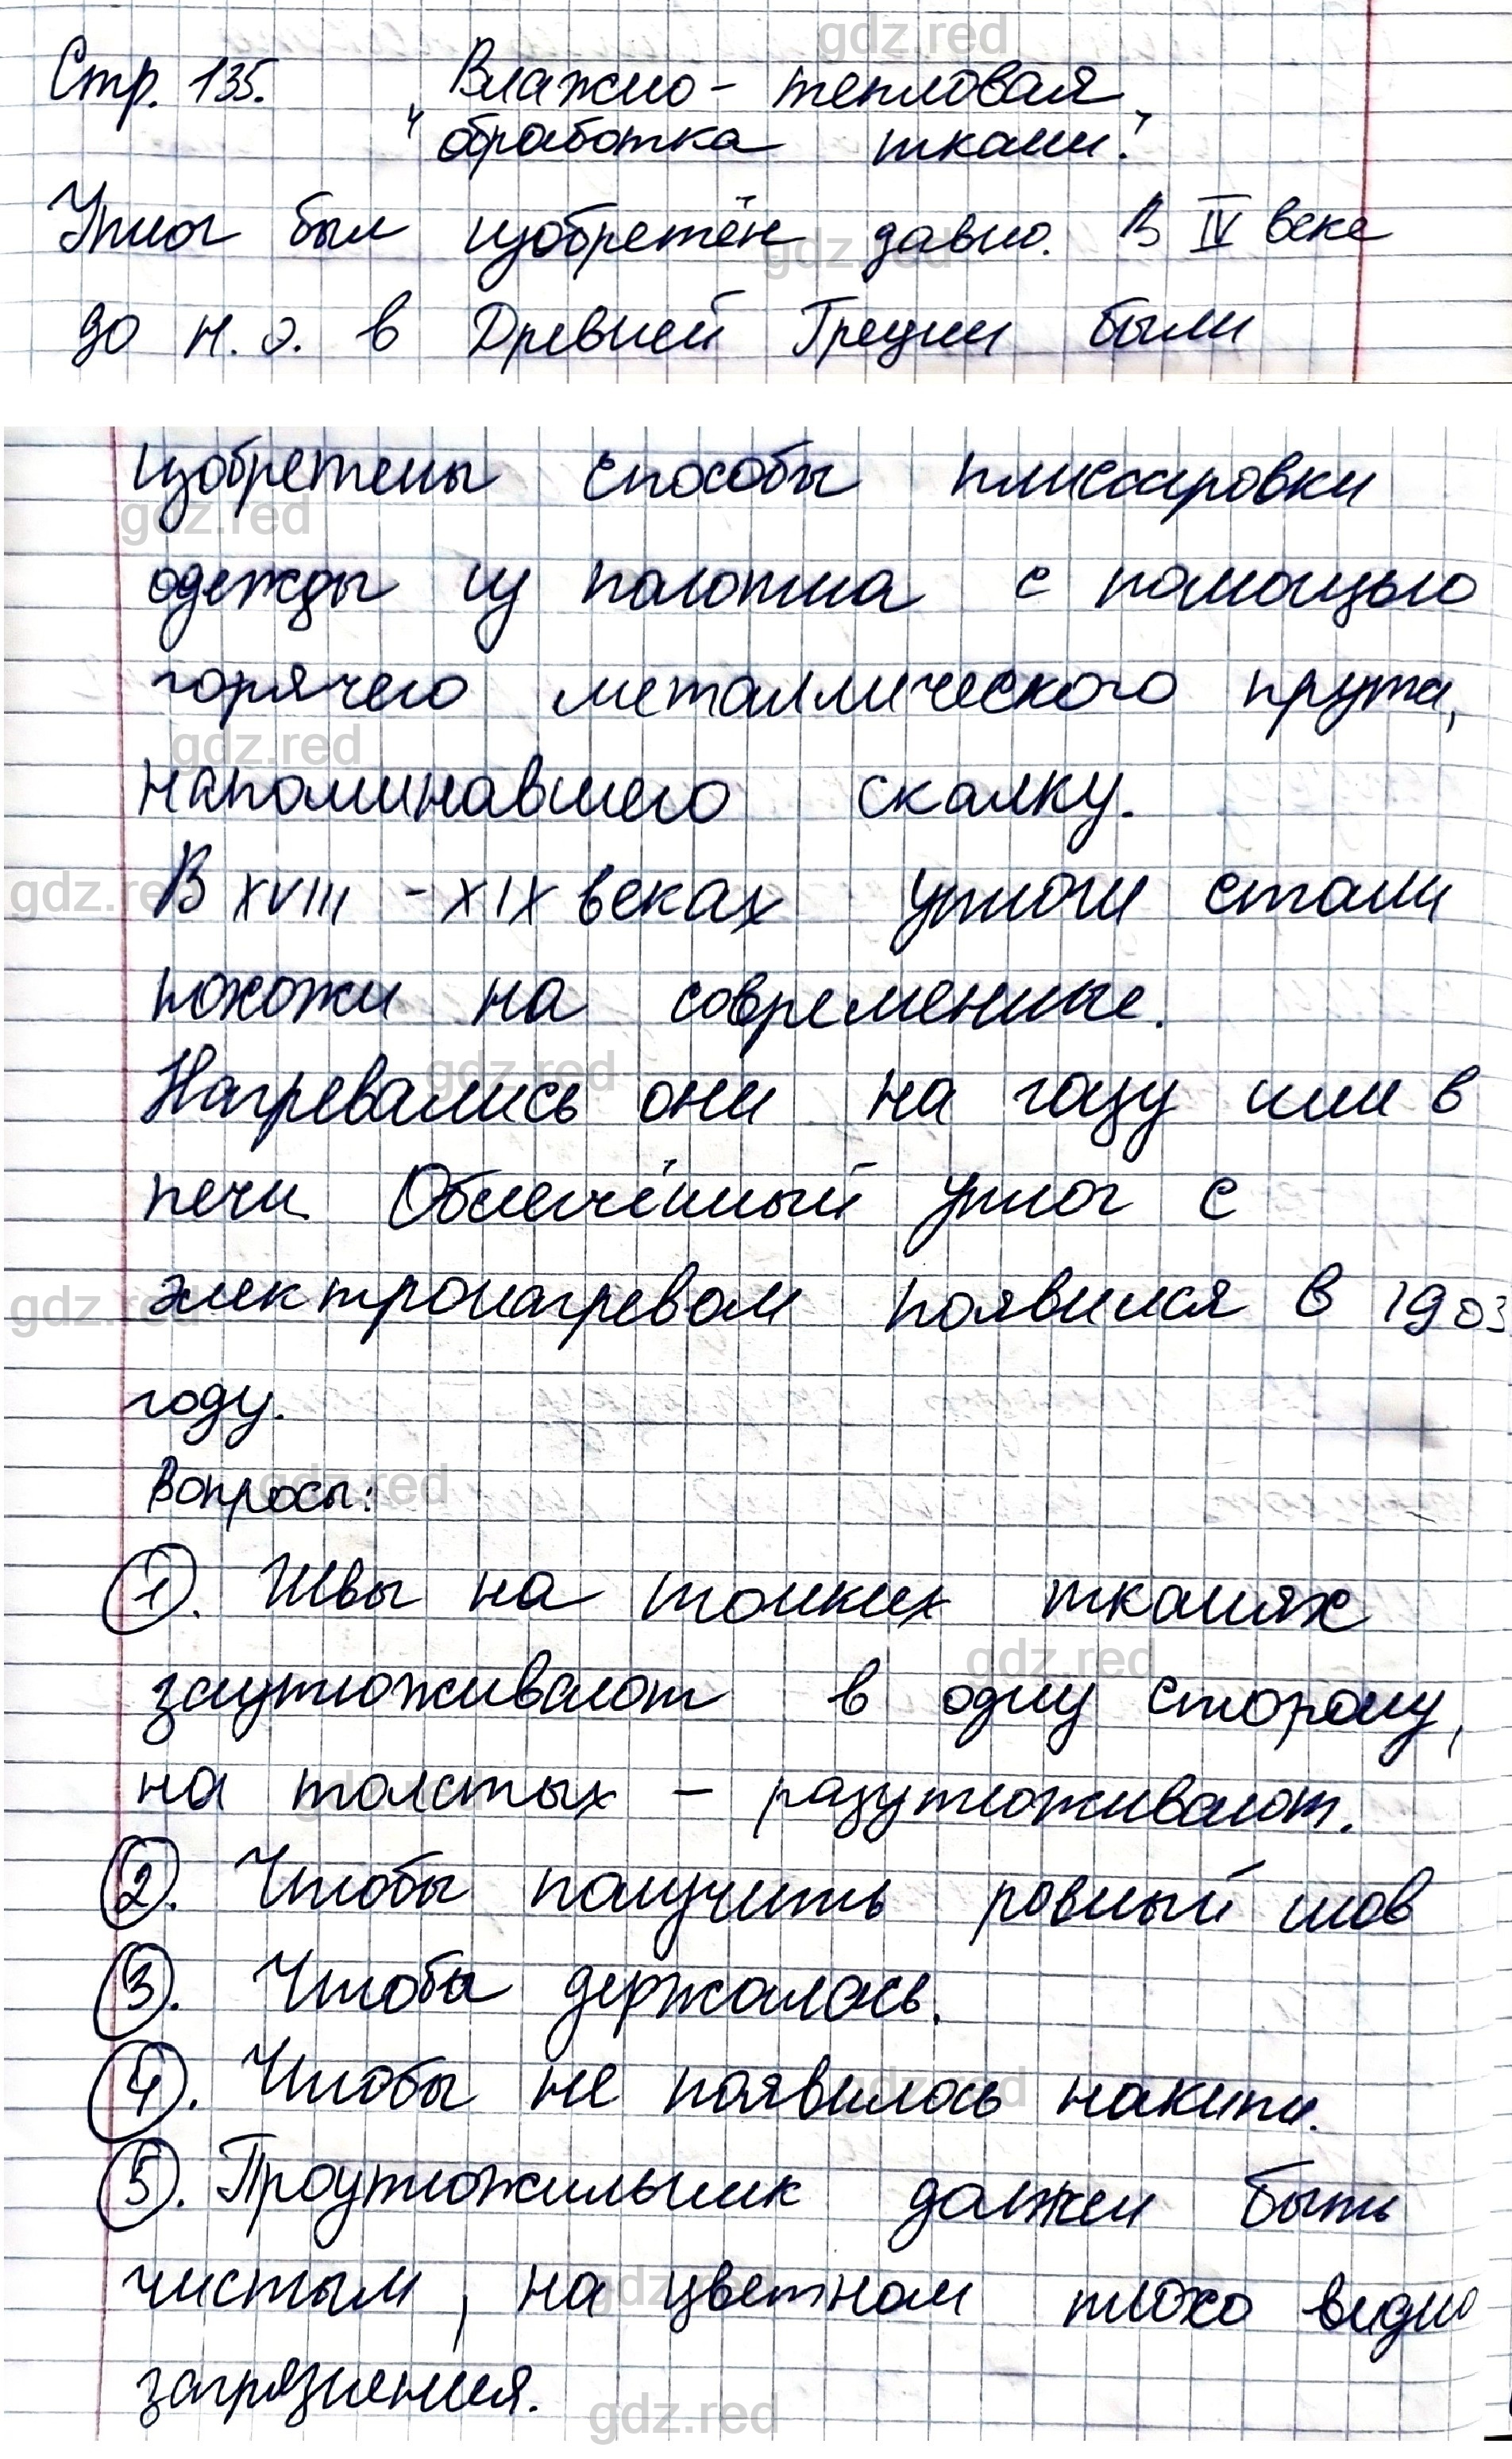 Стр. 135. Влажно - тепловая
"обработка ткани".
Утюг был изобретён давно. В IV веке
до н. э. в Древней Греции были
изобретены способы плиссировки
одежды из полотна с помощью
горячего металлического прута,
напоминавшего скалку.
В XVIII - XIX веках утюги стали
похожи на современные.
Нагревались они на газу или в
печи. Облегчённый утюг с
электронагревом появился в 1903
году.
Вопросы:
1. Швы на тонких тканях
заутюживают в одну сторону,
на толстых - разутюживают.
2. Чтобы получить ровный шов
3. Чтобы держалась.
4. Чтобы не появилось накипи.
5. Проутюжильник должен быть
чистым, на цветном плохо видно
загрязнения.
gdz.red
gdz.red
gdz.red
gdz.red
gdz.red
gdz.red
gdz.red
gdz.red
gdz.red
gdz.red
gdz.red
gdz.red
gdz.red